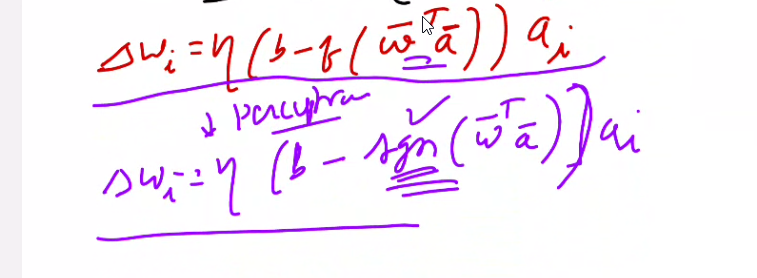 Δwᵢ = η (b - f (w̄ᵀā)) aᵢ
↓ perceptron
Δwᵢ = η (b - sgn (w̄ᵀā)) aᵢ